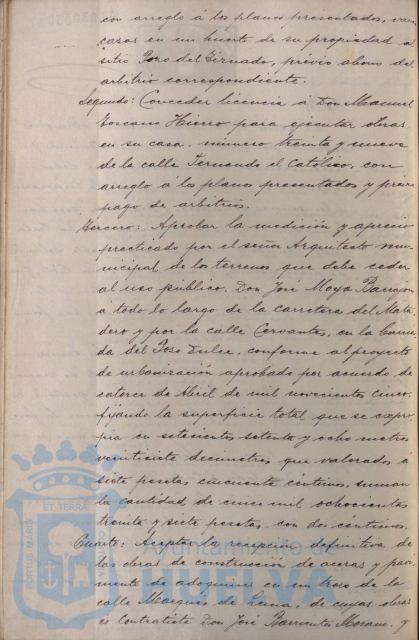 con arreglo á los planos presentados, una
casa en un huerto de su propiedad al
sitio Pozo del Girnado, prévio abono del
arbitrio correspondiente.
Segundo: Conceder licencia á Don Manuel
Toscano Hierro para ejecutar obras
en su casa número treinta y nueve
de la calle Fernando el Católico, con
arreglo á los planos presentados y prévio
pago de arbitrios.
Tercero: Aprobar la medición y aprecio
practicado por el señor Arquitecto mu-
nicipal de los terrenos que debe ceder
al uso público Don José Moya Barragan
á todo lo largo de la carretera del Mata-
dero y por la calle Cervantes, en la Barria-
da del Pozo Dulce, conforme al proyecto
de urbanización aprobado por acuerdo de
catorce de Abril de mil novecientos cinco,
fijando la superficie total que se expro-
pia en setecientos setenta y ocho metros
veintisiete decímetros que valorados á
siete pesetas cincuenta céntimos, suman
la cantidad de cinco mil ochocientas
treinta y siete pesetas con dos céntimos.
Cuarto: Aceptar la recepción definitiva de
las obras de construcción de aceras y pavi-
mento de adoquines en un trozo de la
calle Marqués de, de cuyas obras
es contratista Don José Barrientos Morano, y
Ayuntamiento de
HUELVA
PORTUS MARIS
ET TERRÆ
CUSTODIA